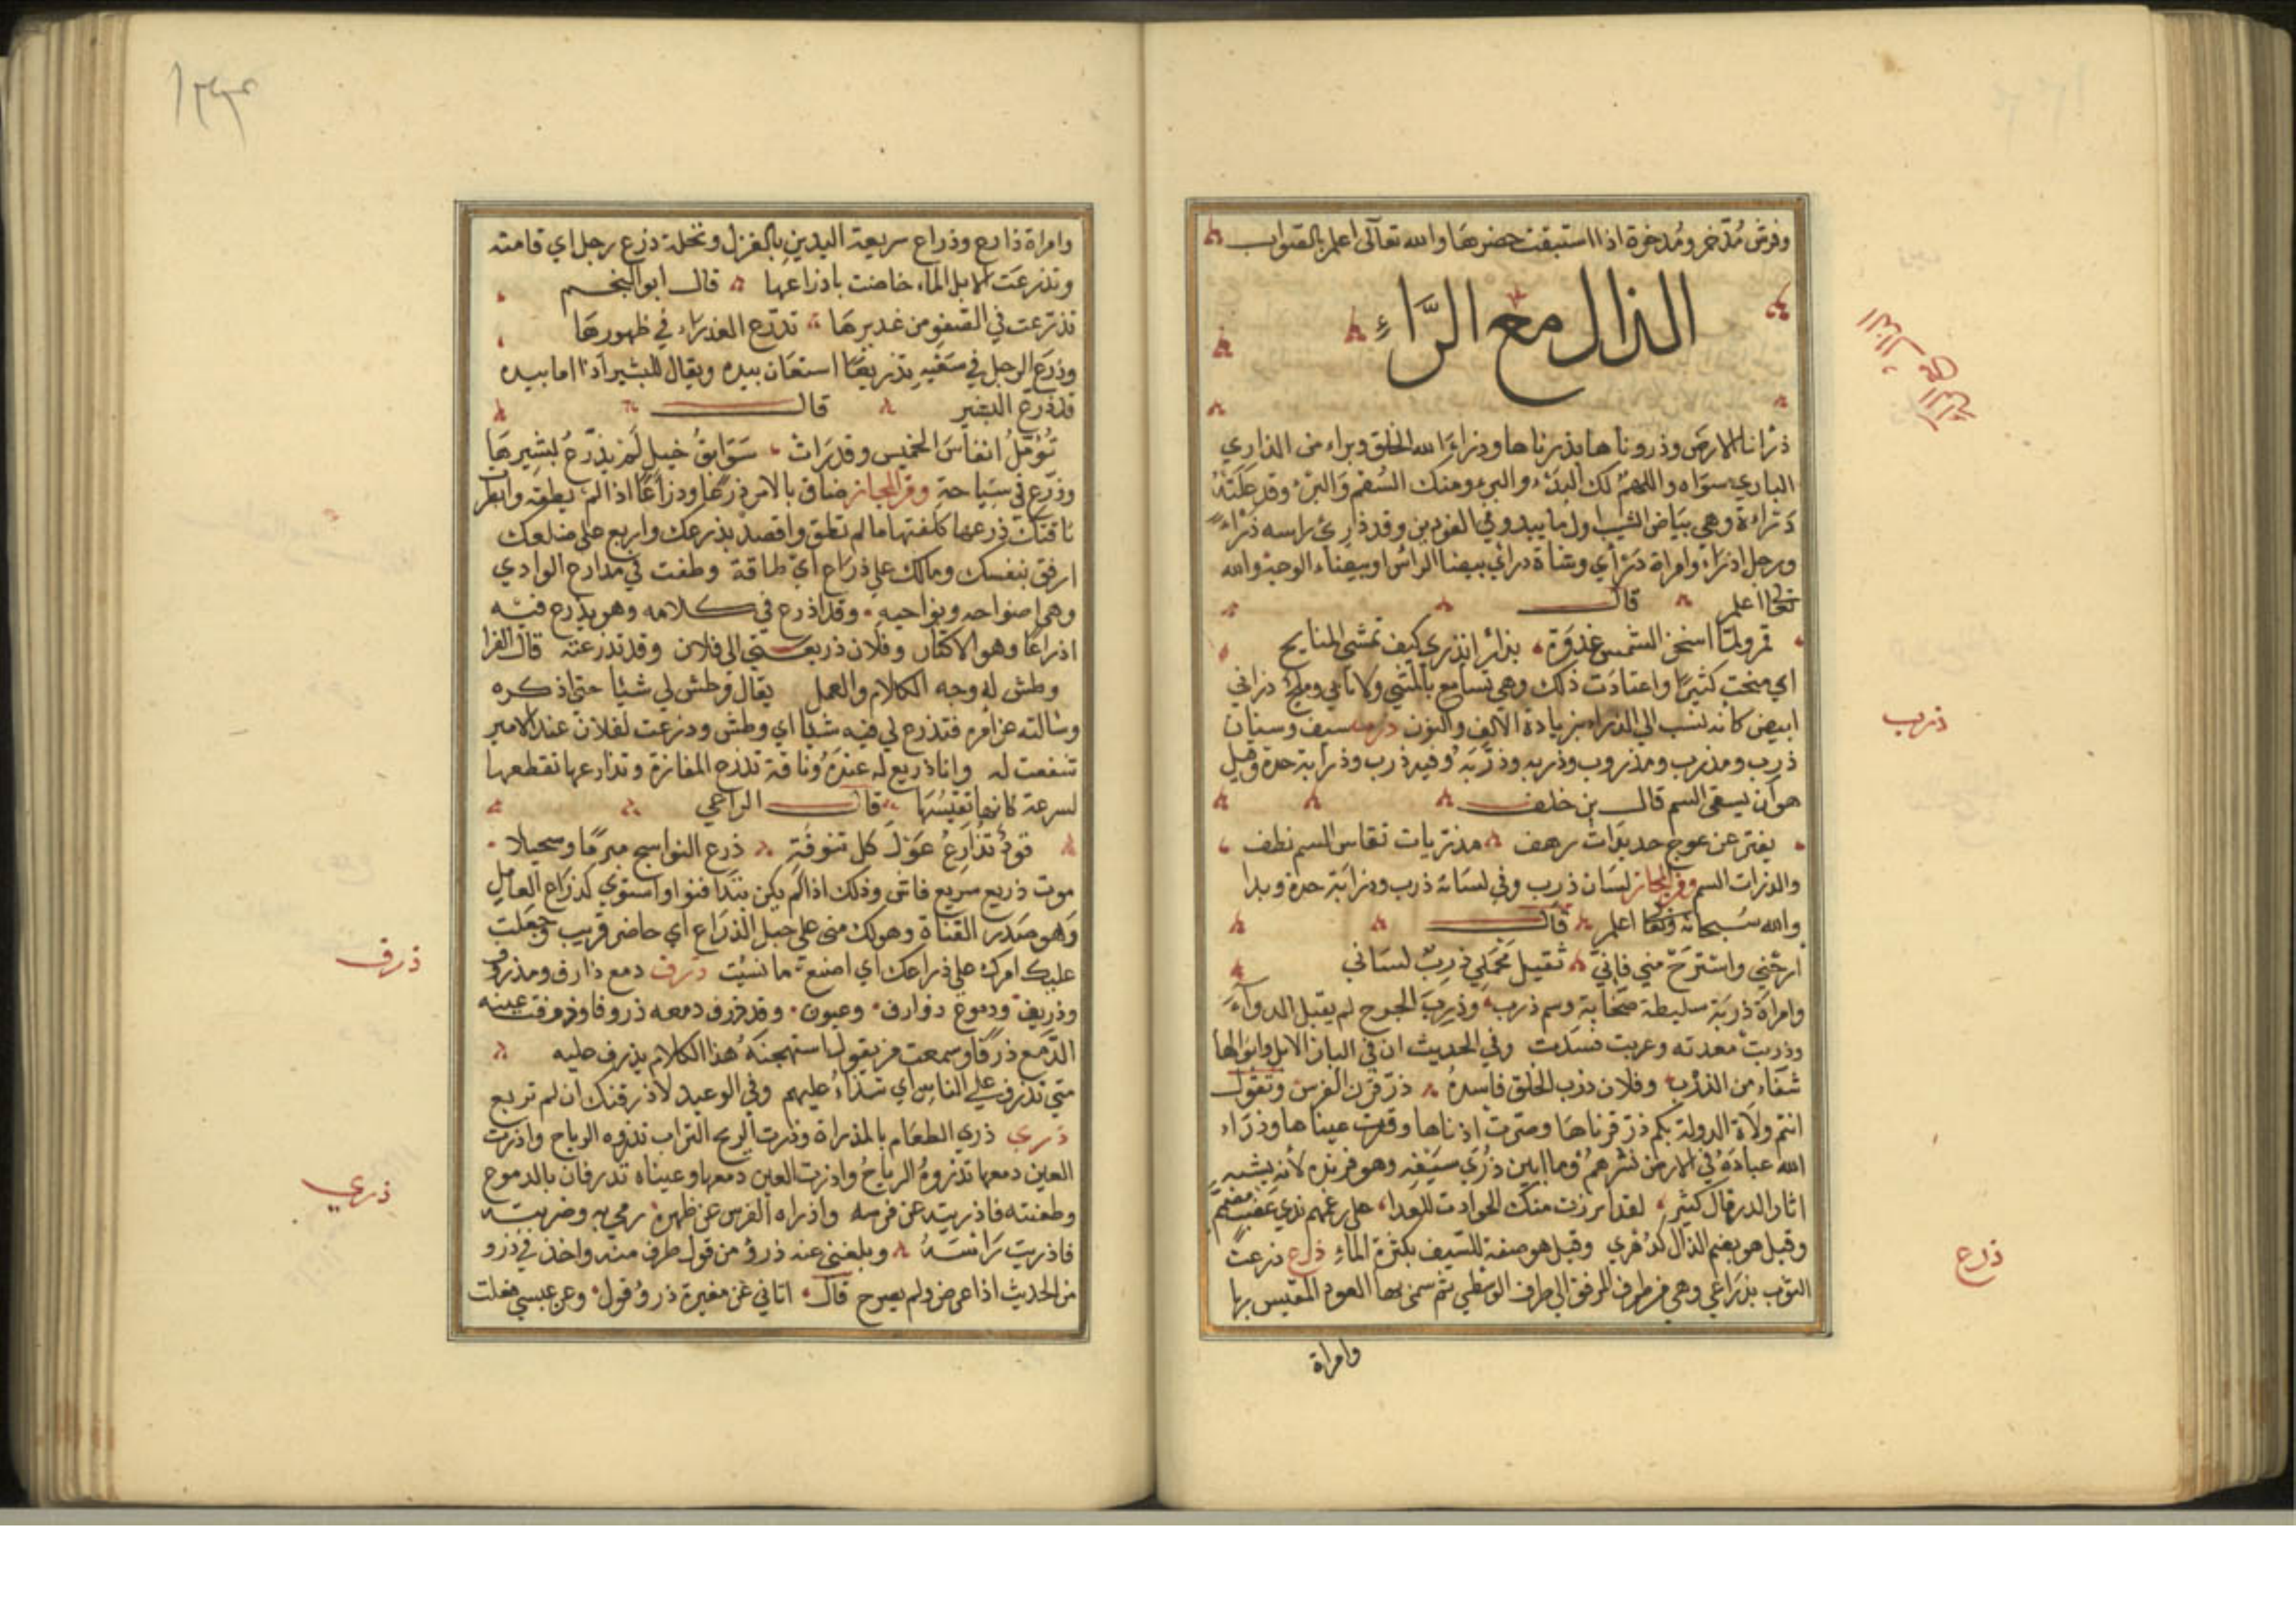 وفرش مُدّخر ومُدخرة اذا استبقت حضرها والله تعالى اعلم بالصواب
الذال مع الرَّاءِ
الذال مع الراء
ذرانا الارض وذروناها بذرناها وذراء الله الخلق وبراء من الذاري
الباري سواه واللهم لك البدء والبرء ومنك السقم والبرء وقد علته
ذراءة وهي بياض الشيب اول ما يبدو في الفودين وقد ذرئ راسه ذراء
ورجل اذراء وامراة ذراي وشاة دراي بيضا الراس او بيضاء الوجه والله
تعالى اعلم قال
فمر ولما اسخن الشمس غدوة بذرا انذري كيف تمشى المنايح
اي منحت كثيرا واعتادت ذلك وهي تسامح بالمشي ولا تابى وملح ذراني
ابيض كانه نسب الى الذراء بزيادة الالف والنون ذرب سيف وسنان
ذرب
ذرب ومذرب ومذروب وذربه وذرّبه وفيه ذرب وذرابة حدة وقيل
هو ان يسقى السم قال بن خلف
يفتر عن عوج حديدات رهف مذربات نقاس السم نطف
والذرات السم وفي المجاز لسان ذرب وفي لسانه ذرب وذرابة حدة وبذا
والله سبحانه وتعالى اعلم قال
ارحني واسترح مني فاني ثقيل محملي ذرب لساني
وامراة ذربة سليطة صخابة وسم ذرب وذرب الجرح لم يقبل الدواء
وذربت معدته وعربت فسدت وفي الحديث ان في البان الابل وابوالها
شفاء من الذرب وفلان ذرب الخلق فاسده ذرّ قرن الفرس وتقول
انتم ولاة الدولة بكم ذرّ قرناها وصرت اذناها وقرت عيناها وذراء
الله عباده في الارض نشرهم وما ابين ذري سيفه وهو فرنده لانه يشبه
اثار الذر قال كثير لقد ابرزت منك الحوادث للعدا على رغمهم ذري عضب
وقيل هو بضم الذال كدُهري وقيل هو صفة للسيف بكثرة الماء ذرع ذرعت
ذرع
الثوب بذراعي وهي من طرف المرفق الى طرف الوسطى ثم سمى بها العود المقيس بها
وامراة
وامراة ذارع وذراع سريعة اليدين بالغزل ونخلة ذرع رجل اي قامته
وتذرعت الابل الماء خاضت باذراعها قال ابو النجم
تذرعت في الصفو من غديرها تدرع العذراء في ظهورها
وذرع الرجل في سعيه تذريعا استعان بيده ويقال للبشير اذا اما بيده
قد ذرع البشير قال
تؤمل انفاس الخميس وقد رات سوابق خيل لم يذرع بشيرها
وذرع في سباحة وفي المجاز ضاق بالامر ذرعا وذراعا اذا لم يطقه وابطر
ناقتك ذرعها كلفتها ما لم تطق واقصد بذرعك واربع على ضلعك
ارفق بنفسك ومالك علي ذراع اي طاقة وطفت في مدارج الوادي
وهي اضواحه ونواحيه وقد اذرع في كلامه وهو يذرع فيه
اذراعا وهو الاكثار وفلان ذريعتي الى فلان وقد تذرعته قال الفرا
وطش له وجه الكلام والعمل يقال وطش لي شيئا حتى اذكره
وسالته عن امره فتذرع لي فيه شيئا اي وطش وذرعت لفلان عند الامير
تشفعت له وانا ذريع له عنده وناقة تذرع المفازة وتذارعها تقطعها
لسرعة كانها تقيسها قال الراعي
قود تذارع عول كل تنوفة ذرع النواسج مبرما وسحيلا
موت ذريع سريع فاش وذلك اذا لم يكن بتدافنوا واستوي كذراع العامل
وهو صدر القناة وهو لك منى على حبل الذراع اي حاضر قريب وجعلت
عليك امرك على ذراعك اي اصنع ما نسيت ذرف دمع ذارف ومذروف
ذرف
وذريف ودموع ذوارف وعيون وقد ذرف دمعه ذروفا وذرفت عينه
الدمع ذرفا وسمعت من يقول استهجنه هذا الكلام يذرف عليه
متى تذرف على الناس اي تتذاء عليهم وفي الوعيد لاذرفنك ان لم تربع
ذري ذري الطعام بالمذراة وذرت الريح التراب تذروه الرياح واذرت
العين دمعها تذروه الرياح واذرت العين دمعها وعيناه تذرفان بالدموع
ذري
وطعنته فاذريته عن فرسه واذراه الفرس عن ظهره رمى به وضربته
فاذريت راسه وبلغني عنه ذرؤ من قول طرف منه واخذ في ذرو
من الحديث اذا عرض ولم يصرح قال اتاني عن مغيرة ذرو قول وعن عيسى فقلت